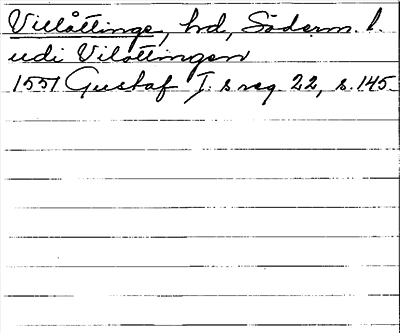 Villåttinge, hd, Söderm. l.
udi Vilåttingen
1551 Gustaf I:s reg. 22, s. 145.